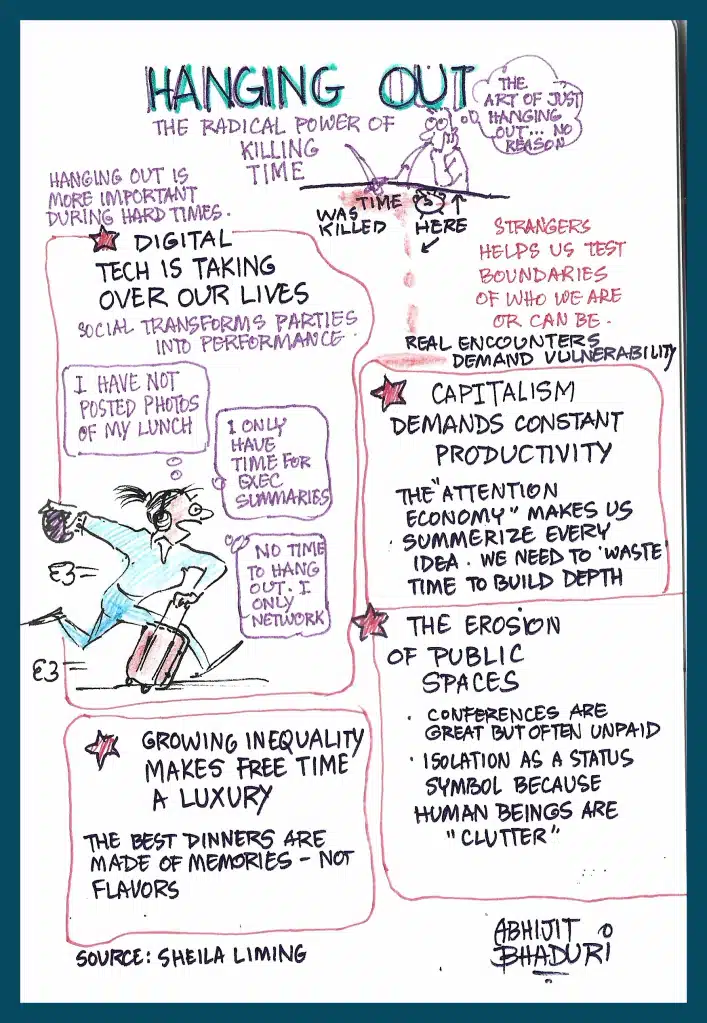 HANGING OUT
THE RADICAL POWER OF
KILLING
TIME
THE
ART OF JUST
HANGING
OUT... NO
REASON
HANGING OUT IS
MORE IMPORTANT
DURING HARD TIMES.
TIME
WAS
KILLED
HERE
STRANGERS
HELPS US TEST
BOUNDARIES
OF WHO WE ARE
OR CAN BE.
REAL ENCOUNTERS
DEMAND VULNERABILITY
DIGITAL
TECH IS TAKING
OVER OUR LIVES
SOCIAL TRANSFORMS PARTIES
INTO PERFORMANCE.
I HAVE NOT
POSTED PHOTOS
OF MY LUNCH
I ONLY
HAVE
TIME FOR
EXEC
SUMMARIES
NO TIME
TO HANG
OUT. I
ONLY
NETWORK
CAPITALISM
DEMANDS CONSTANT
PRODUCTIVITY
THE "ATTENTION
ECONOMY" MAKES US
SUMMERIZE EVERY
IDEA. WE NEED TO 'WASTE'
TIME TO BUILD DEPTH
THE EROSION
OF PUBLIC
SPACES
· CONFERENCES ARE
GREAT BUT OFTEN UNPAID
· ISOLATION AS A STATUS
SYMBOL BECAUSE
HUMAN BEINGS ARE
"CLUTTER"
GROWING INEQUALITY
MAKES FREE TIME
A LUXURY
THE BEST DINNERS ARE
MADE OF MEMORIES - NOT
FLAVORS
SOURCE: SHEILA LIMING
ABHIJIT
BHADURI